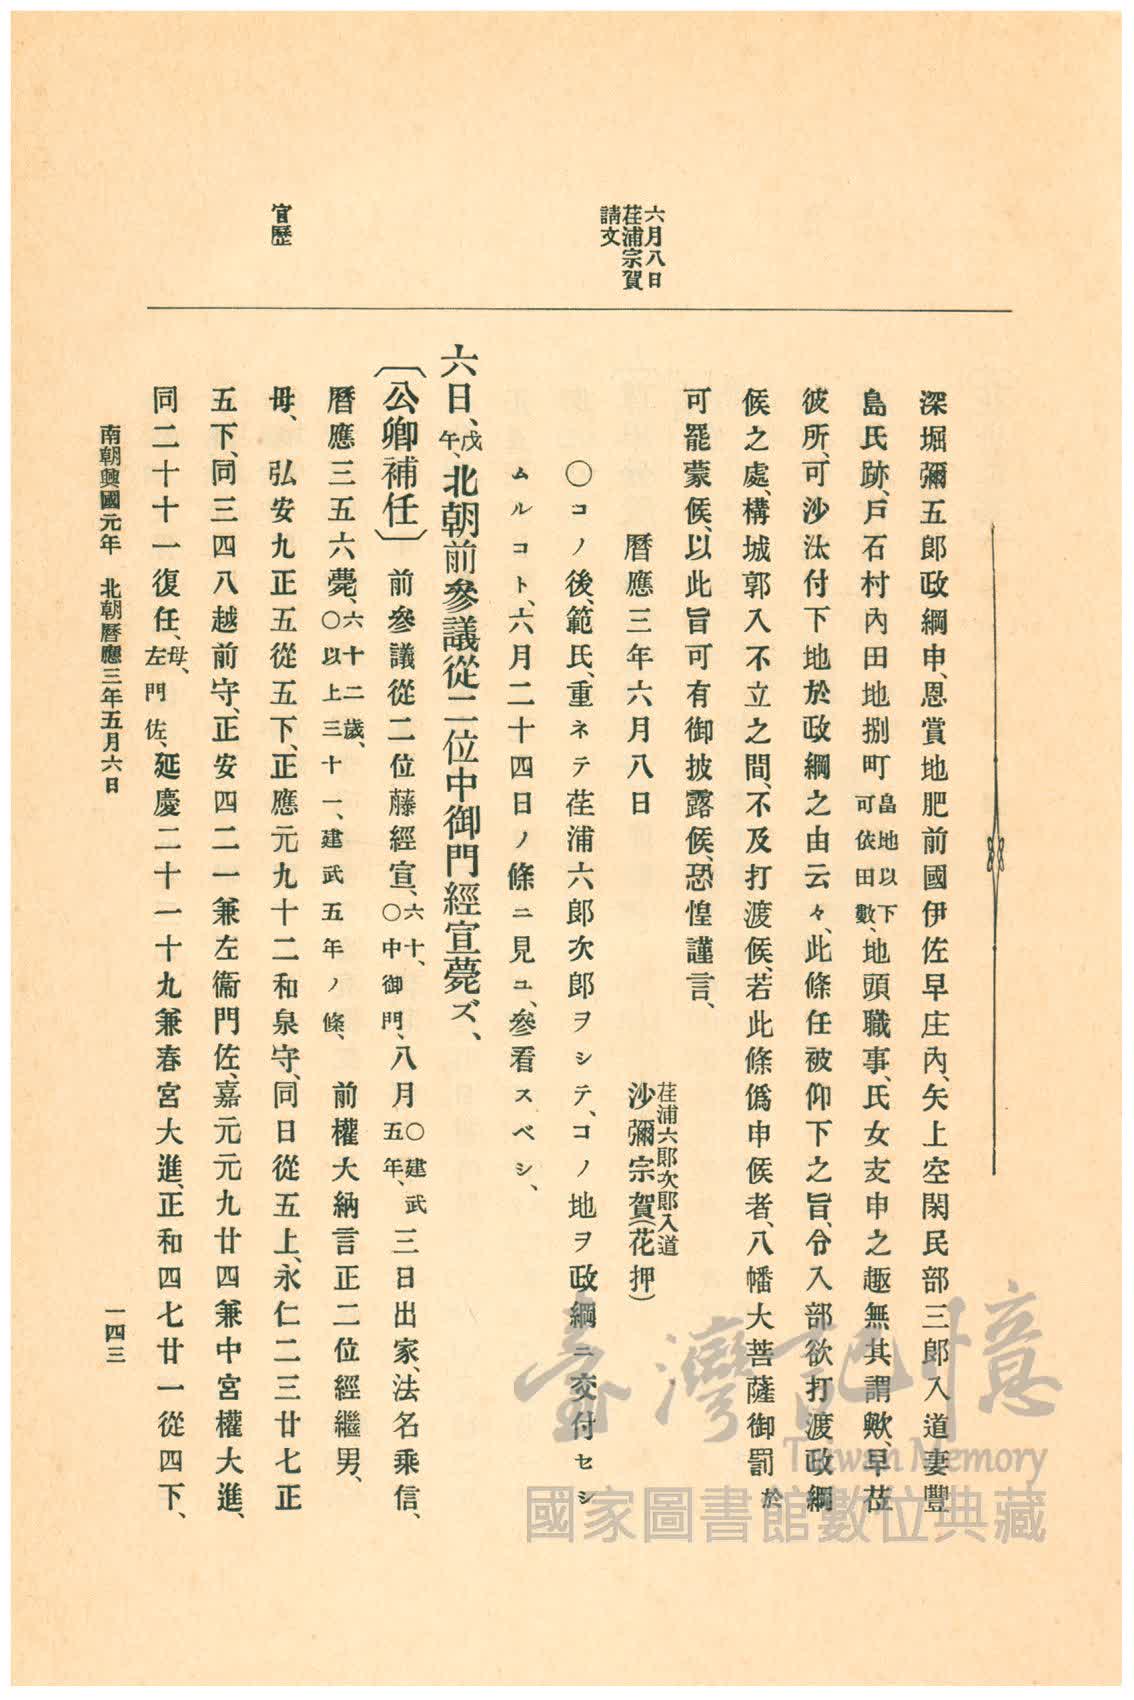 六月八日
荏浦宗賀
請文
官歷
深堀彌五郎政綱申、恩賞地肥前國伊佐早庄內、矢上空閑民部三郎入道妻豐
島氏跡、戶石村內田地捌町畠地以下可依田數、地頭職事、氏女支申之趣無其謂歟、早莅
彼所、可沙汰付下地於政綱之由云々、此條任被仰下之旨、令入部欲打渡政綱
候之處、構城郭入不立之間、不及打渡候、若此條僞申候者、八幡大菩薩御罰於
可罷蒙候、以此旨可有御披露候、恐惶謹言、
曆應三年六月八日
荏浦六郎次郎入道
沙彌宗賀(花押)
〇コノ後、範氏、重ネテ荏浦六郎次郎ヲシテ、コノ地ヲ政綱ニ交付セシ
ムルコト、六月二十四日ノ條ニ見ユ、參看スベシ、
六日、戊午、北朝前參議從二位中御門經宣薨ズ、
〔公卿補任〕前參議從二位藤經宣、六十、〇中御門、八月〇建武五年、三日出家、法名乘信、
曆應三五六薨、六十二歲、〇以上三十一、建武五年ノ條、前權大納言正二位經繼男、
母、弘安九正五從五下、正應元九十二和泉守、同日從五上、永仁二三廿七正
五下、同三四八越前守、正安四二一兼左衞門佐、嘉元元九廿四兼中宮權大進、
同二十十一復任、母、左門佐、延慶二十一十九兼春宮大進、正和四七廿一從四下、
南朝興國元年 北朝曆應三年五月六日
一四三
臺灣記憶
Taiwan Memory
國家圖書館數位典藏